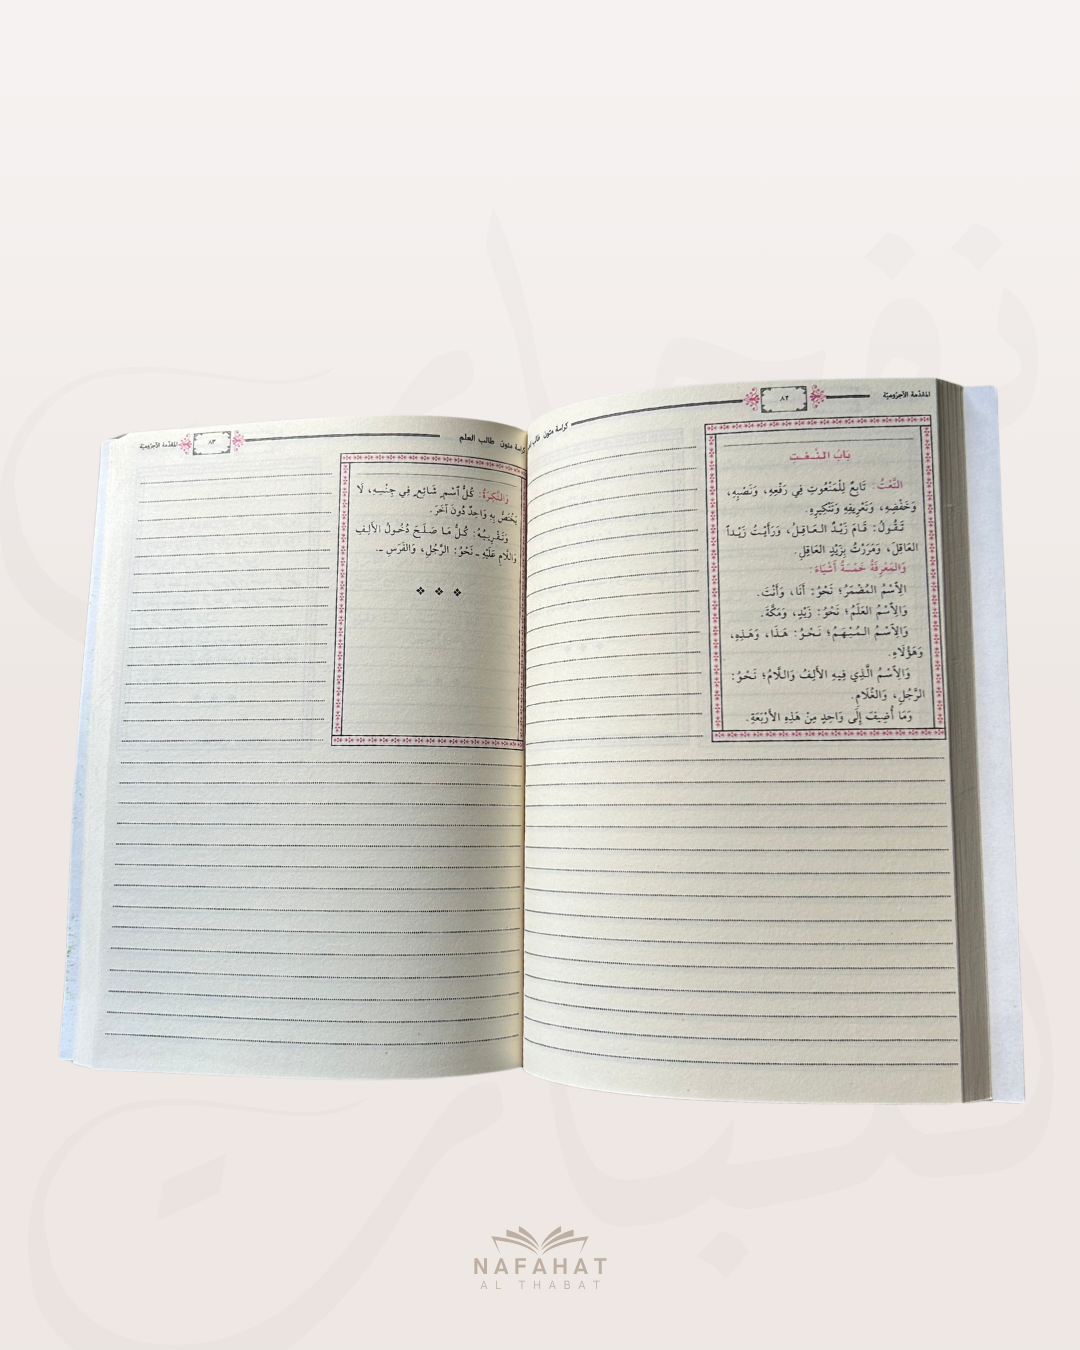 المقدّمة الآجرّوميّة
٨٢
كراسة متون طالب العلم
بَابُ النَّعْتِ
النَّعْتُ: تَابِعٌ لِلْمَنْعُوتِ فِي رَفْعِهِ، وَنَصْبِهِ،
وَخَفْضِهِ، وَتَعْرِيفِهِ وَتَنْكِيرِهِ.
تَقُولُ: قَامَ زَيْدٌ العَاقِلُ، وَرَأَيْتُ زَيْداً
العَاقِلَ، وَمَرَرْتُ بِزَيْدٍ العَاقِلِ.
وَالمَعْرِفَةُ خَمْسَةُ أَشْيَاءَ:
الِاسْمُ المُضْمَرُ؛ نَحْوُ: أَنَا، وَأَنْتَ.
وَالِاسْمُ العَلَمُ؛ نَحْوُ: زَيْدٍ، وَمَكَّةَ.
وَالِاسْمُ المُبْهَمُ؛ نَحْوُ: هَذَا، وَهَذِهِ،
وَهَؤُلَاءِ.
وَالِاسْمُ الَّذِي فِيهِ الأَلِفُ وَاللَّامُ؛ نَحْوُ:
الرَّجُلِ، وَالغُلَامِ.
وَمَا أُضِيفَ إِلَى وَاحِدٍ مِنْ هَذِهِ الأَرْبَعَةِ.
كراسة متون طالب العلم
٨٣
المقدّمة الآجرّوميّة
وَالنَّكِرَةُ: كُلُّ ٱسْمٍ شَائِعٍ فِي جِنْسِهِ، لَا
يَخْتَصُّ بِهِ وَاحِدٌ دُونَ آخَرَ.
وَتَقْرِيبُهُ: كُلُّ مَا صَلَحَ دُخُولُ الأَلِفِ
وَاللَّامِ عَلَيْهِ ـ نَحْوُ: الرَّجُلِ، وَالفَرَسِ ـ.
NAFAHAT
AL THABAT